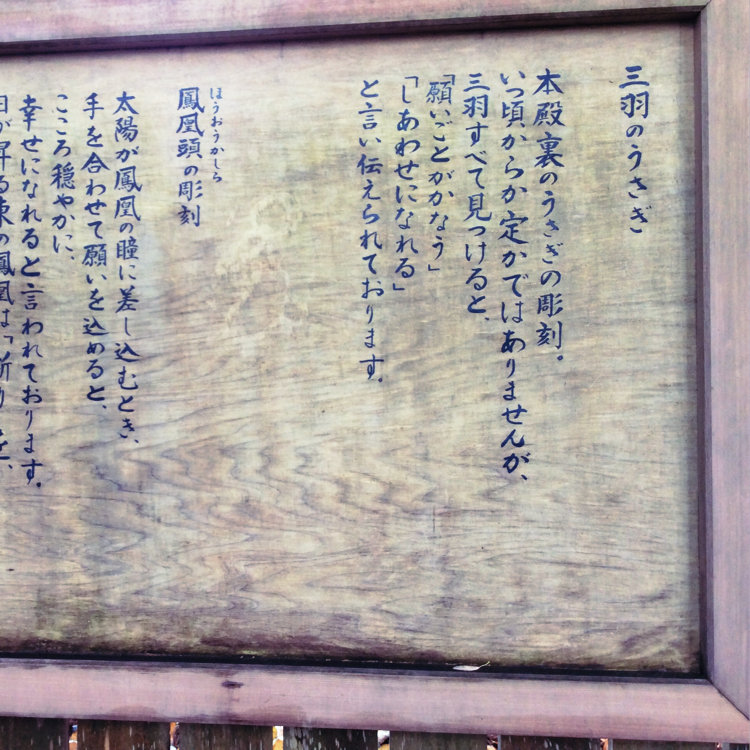 三羽のうさぎ
本殿裏のうさぎの彫刻。
いつ頃からか定かではありませんが、
三羽すべて見つけると、
「願いごとがかなう」
「しあわせになれる」
と言い伝えられております。
ほうおうかしら
鳳凰頭の彫刻
太陽が鳳凰の瞳に差し込むとき、
手を合わせて願いを込めると、
こころ穏やかに、
幸せになれると言われております。
日が昇る東の鳳凰は「祈り」を、